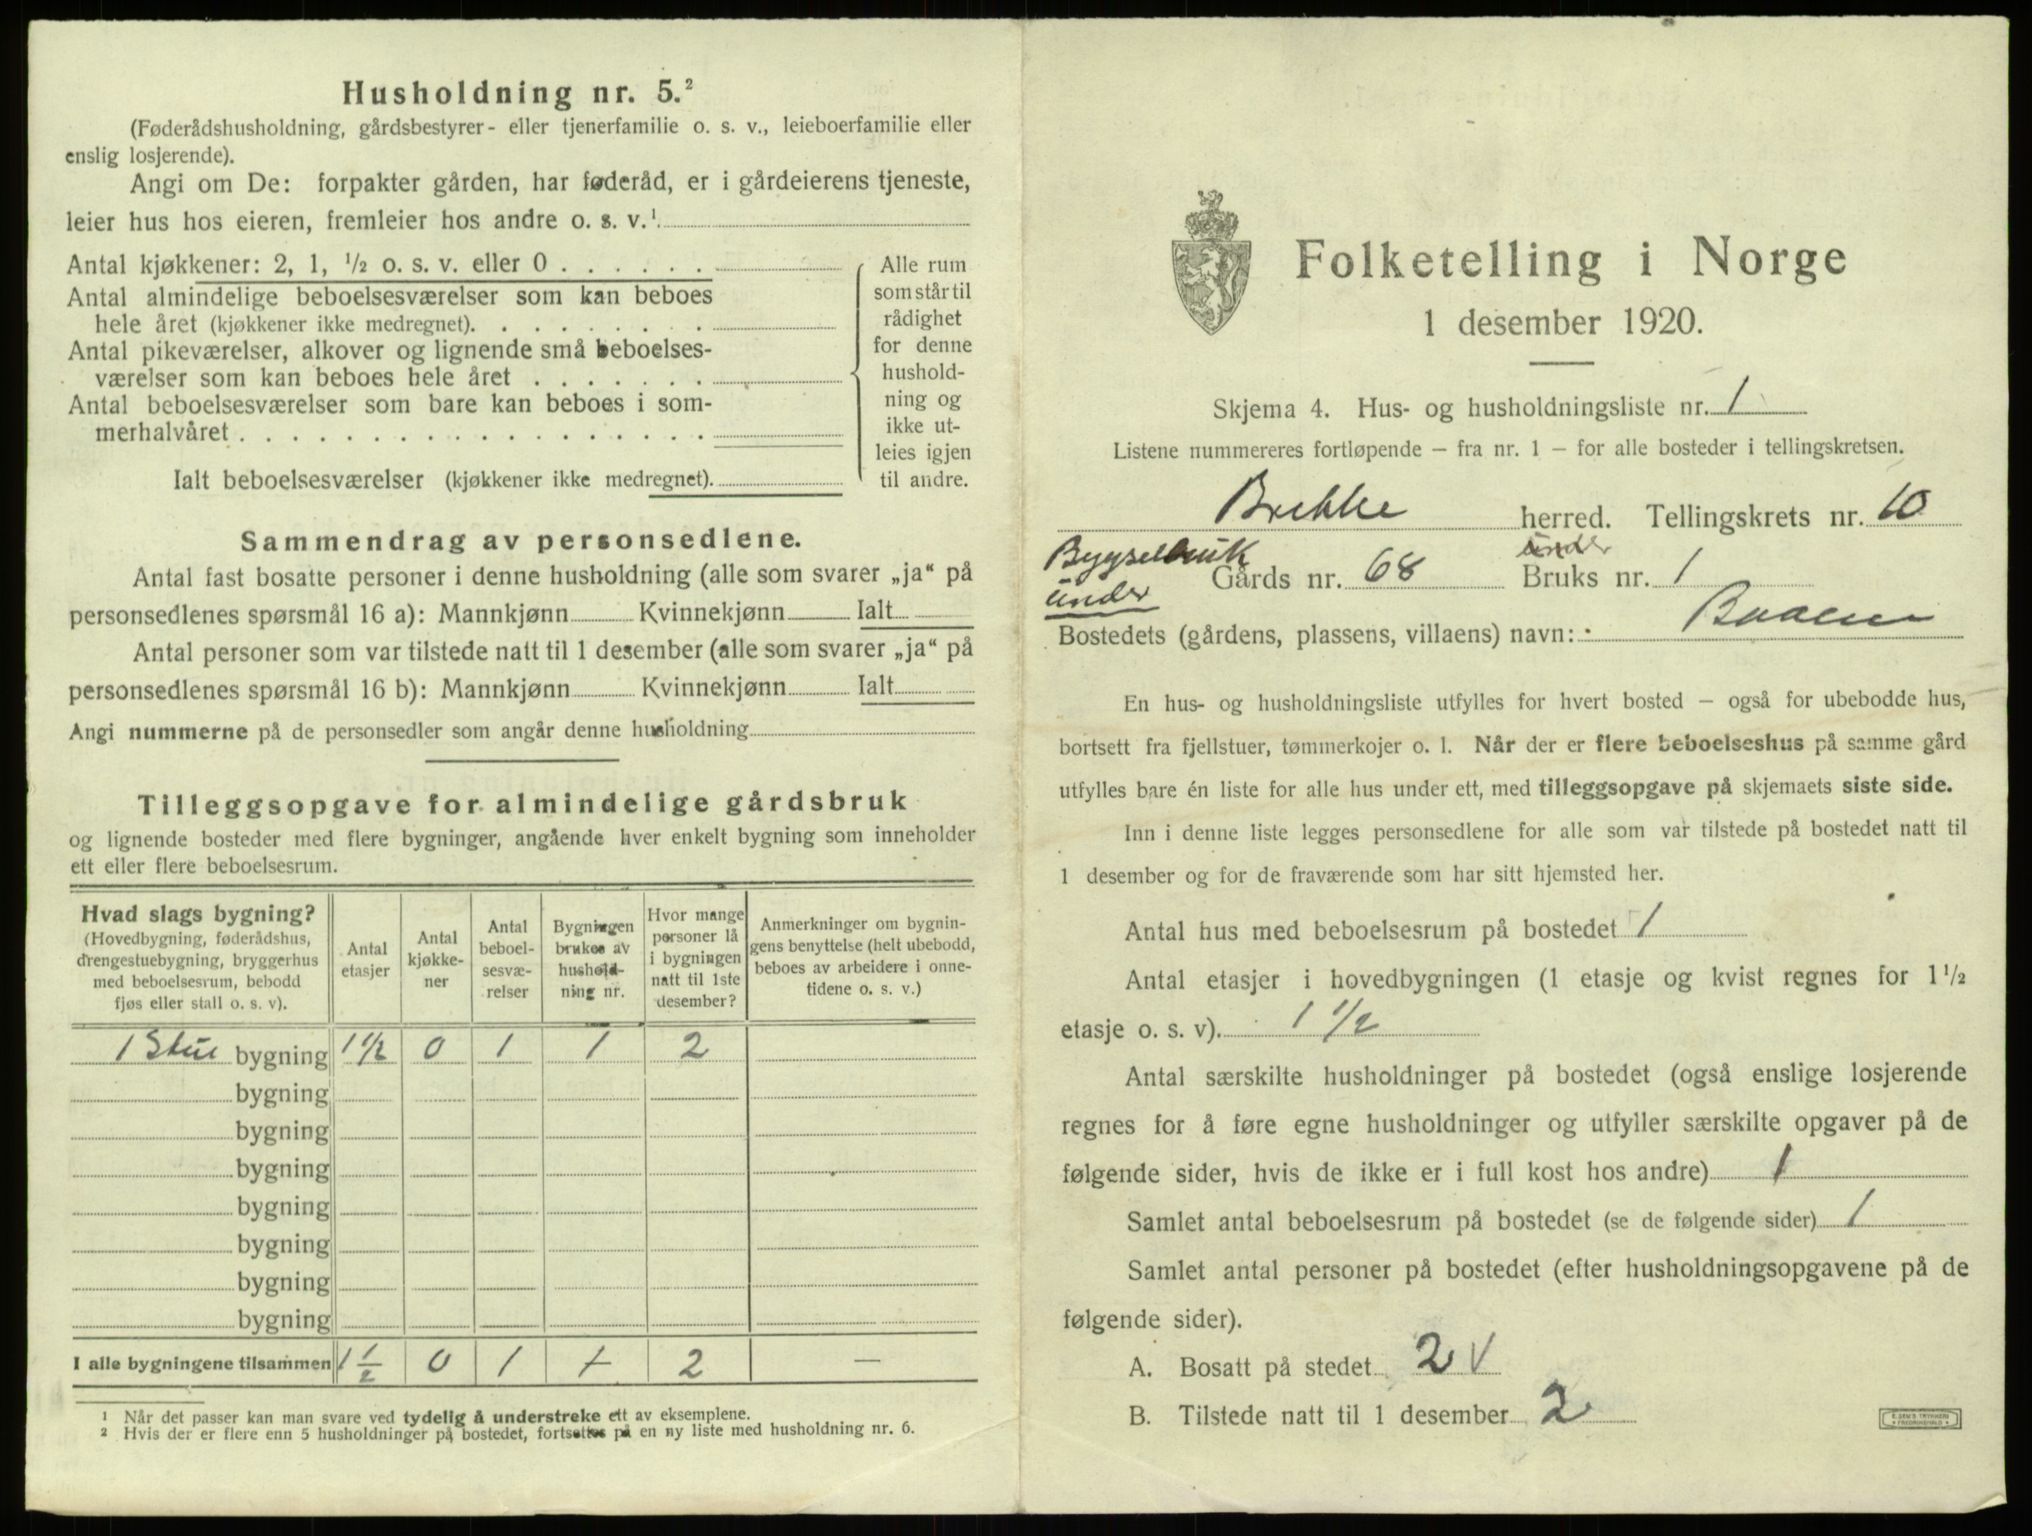 Husholdning nr. 5.²
(Føderådshusholdning, gårdsbestyrer- eller tjenerfamilie o. s. v., leieboerfamilie eller
enslig losjerende).
Angi om De: forpakter gården, har føderåd, er i gårdeierens tjeneste,
leier hus hos eieren, fremleier hos andre o. s. v.¹
Antal kjøkkener: 2, 1, ½ o. s. v. eller 0
Antal almindelige beboelsesværelser som kan beboes
hele året (kjøkkener ikke medregnet).
Antal pikeværelser, alkover og lignende små beboelses-
værelser som kan beboes hele året
Antal beboelsesværelser som bare kan beboes i som-
merhalvåret
Ialt beboelsesværelser (kjøkkener ikke medregnet).
Alle rum
som står til
rådighet
for denne
hushold-
ning og
ikke ut-
leies igjen
til andre.
Sammendrag av personsedlene.
Antal fast bosatte personer i denne husholdning (alle som svarer „ja“ på
personsedlenes spørsmål 16 a): Mannkjønn Kvinnekjønn Ialt
Antal personer som var tilstede natt til 1 desember (alle som svarer „ja“ på
personsedlenes spørsmål 16 b): Mannkjønn Kvinnekjønn Ialt
Angi nummerne på de personsedler som angår denne husholdning
Tilleggsopgave for almindelige gårdsbruk
og lignende bosteder med flere bygninger, angående hver enkelt bygning som inneholder
ett eller flere beboelsesrum.
Hvad slags bygning?
(Hovedbygning, føderådshus,
drengestuebygning, bryggerhus
med beboelsesrum, bebodd
fjøs eller stall o. s. v).
Antal
etasjer
Antal
kjøkke-
ner
Antal
beboel-
sesvæ-
relser
Bygningen
brukes av
hushold-
ning nr.
Hvor mange
personer lå
i bygningen
natt til 1ste
desember?
Anmerkninger om bygnin-
gens benyttelse (helt ubebodd,
beboes av arbeidere i onne-
tidene o. s. v.)
1 Stue bygning 1½ 0 1 1 2
bygning
bygning
bygning
bygning
bygning
bygning
bygning
I alle bygningene tilsammen 1½ 0 1 1 2 —
¹ Når det passer kan man svare ved tydelig å understreke ett av eksemplene.
² Hvis der er flere enn 5 husholdninger på bostedet, fortsettes på en ny liste med husholdning nr. 6.
Folketelling i Norge
1 desember 1920.
Skjema 4. Hus- og husholdningsliste nr. 1
Listene nummereres fortløpende – fra nr. 1 – for alle bosteder i tellingskretsen.
Brekke herred. Tellingskrets nr. 10
Bygselbruk under
under Gårds nr. 68 Bruks nr. 1
Bostedets (gårdens, plassens, villaens) navn:
En hus- og husholdningsliste utfylles for hvert bosted – også for ubebodde hus,
bortsett fra fjellstuer, tømmerkojer o. l. Når der er flere beboelseshus på samme gård
utfylles bare én liste for alle hus under ett, med tilleggsopgave på skjemaets siste side.
Inn i denne liste legges personsedlene for alle som var tilstede på bostedet natt til
1 desember og for de fraværende som har sitt hjemsted her.
Antal hus med beboelsesrum på bostedet 1
Antal etasjer i hovedbygningen (1 etasje og kvist regnes for 1½
etasje o. s. v). 1½
Antal særskilte husholdninger på bostedet (også enslige losjerende
regnes for å føre egne husholdninger og utfyller særskilte opgaver på de
følgende sider, hvis de ikke er i full kost hos andre) 1
Samlet antal beboelsesrum på bostedet (se de følgende sider) 1
Samlet antal personer på bostedet (efter husholdningsopgavene på de
følgende sider).
A. Bosatt på stedet 2 V
B. Tilstede natt til 1 desember 2
E. SEM'S TRYKKERI
FREDRIKSHALD